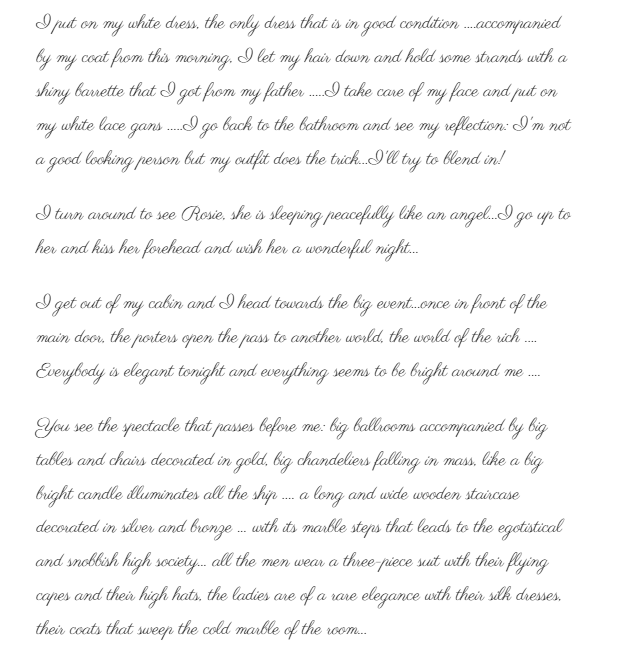 I put on my white dress, the only dress that is in good condition ....accompanied
by my coat from this morning, I let my hair down and hold some strands with a
shiny barrette that I got from my father .....I take care of my face and put on
my white lace gans .....I go back to the bathroom and see my reflection: I'm not
a good looking person but my outfit does the trick...I'll try to blend in!
I turn around to see Rosie, she is sleeping peacefully like an angel...I go up to
her and kiss her forehead and wish her a wonderful night...
I get out of my cabin and I head towards the big event...once in front of the
main door, the porters open the pass to another world, the world of the rich ....
Everybody is elegant tonight and everything seems to be bright around me ....
You see the spectacle that passes before me: big ballrooms accompanied by big
tables and chairs decorated in gold, big chandeliers falling in mass, like a big
bright candle illuminates all the ship .... a long and wide wooden staircase
decorated in silver and bronze ... with its marble steps that leads to the egotistical
and snobbish high society... all the men wear a three-piece suit with their flying
capes and their high hats, the ladies are of a rare elegance with their silk dresses,
their coats that sweep the cold marble of the room...